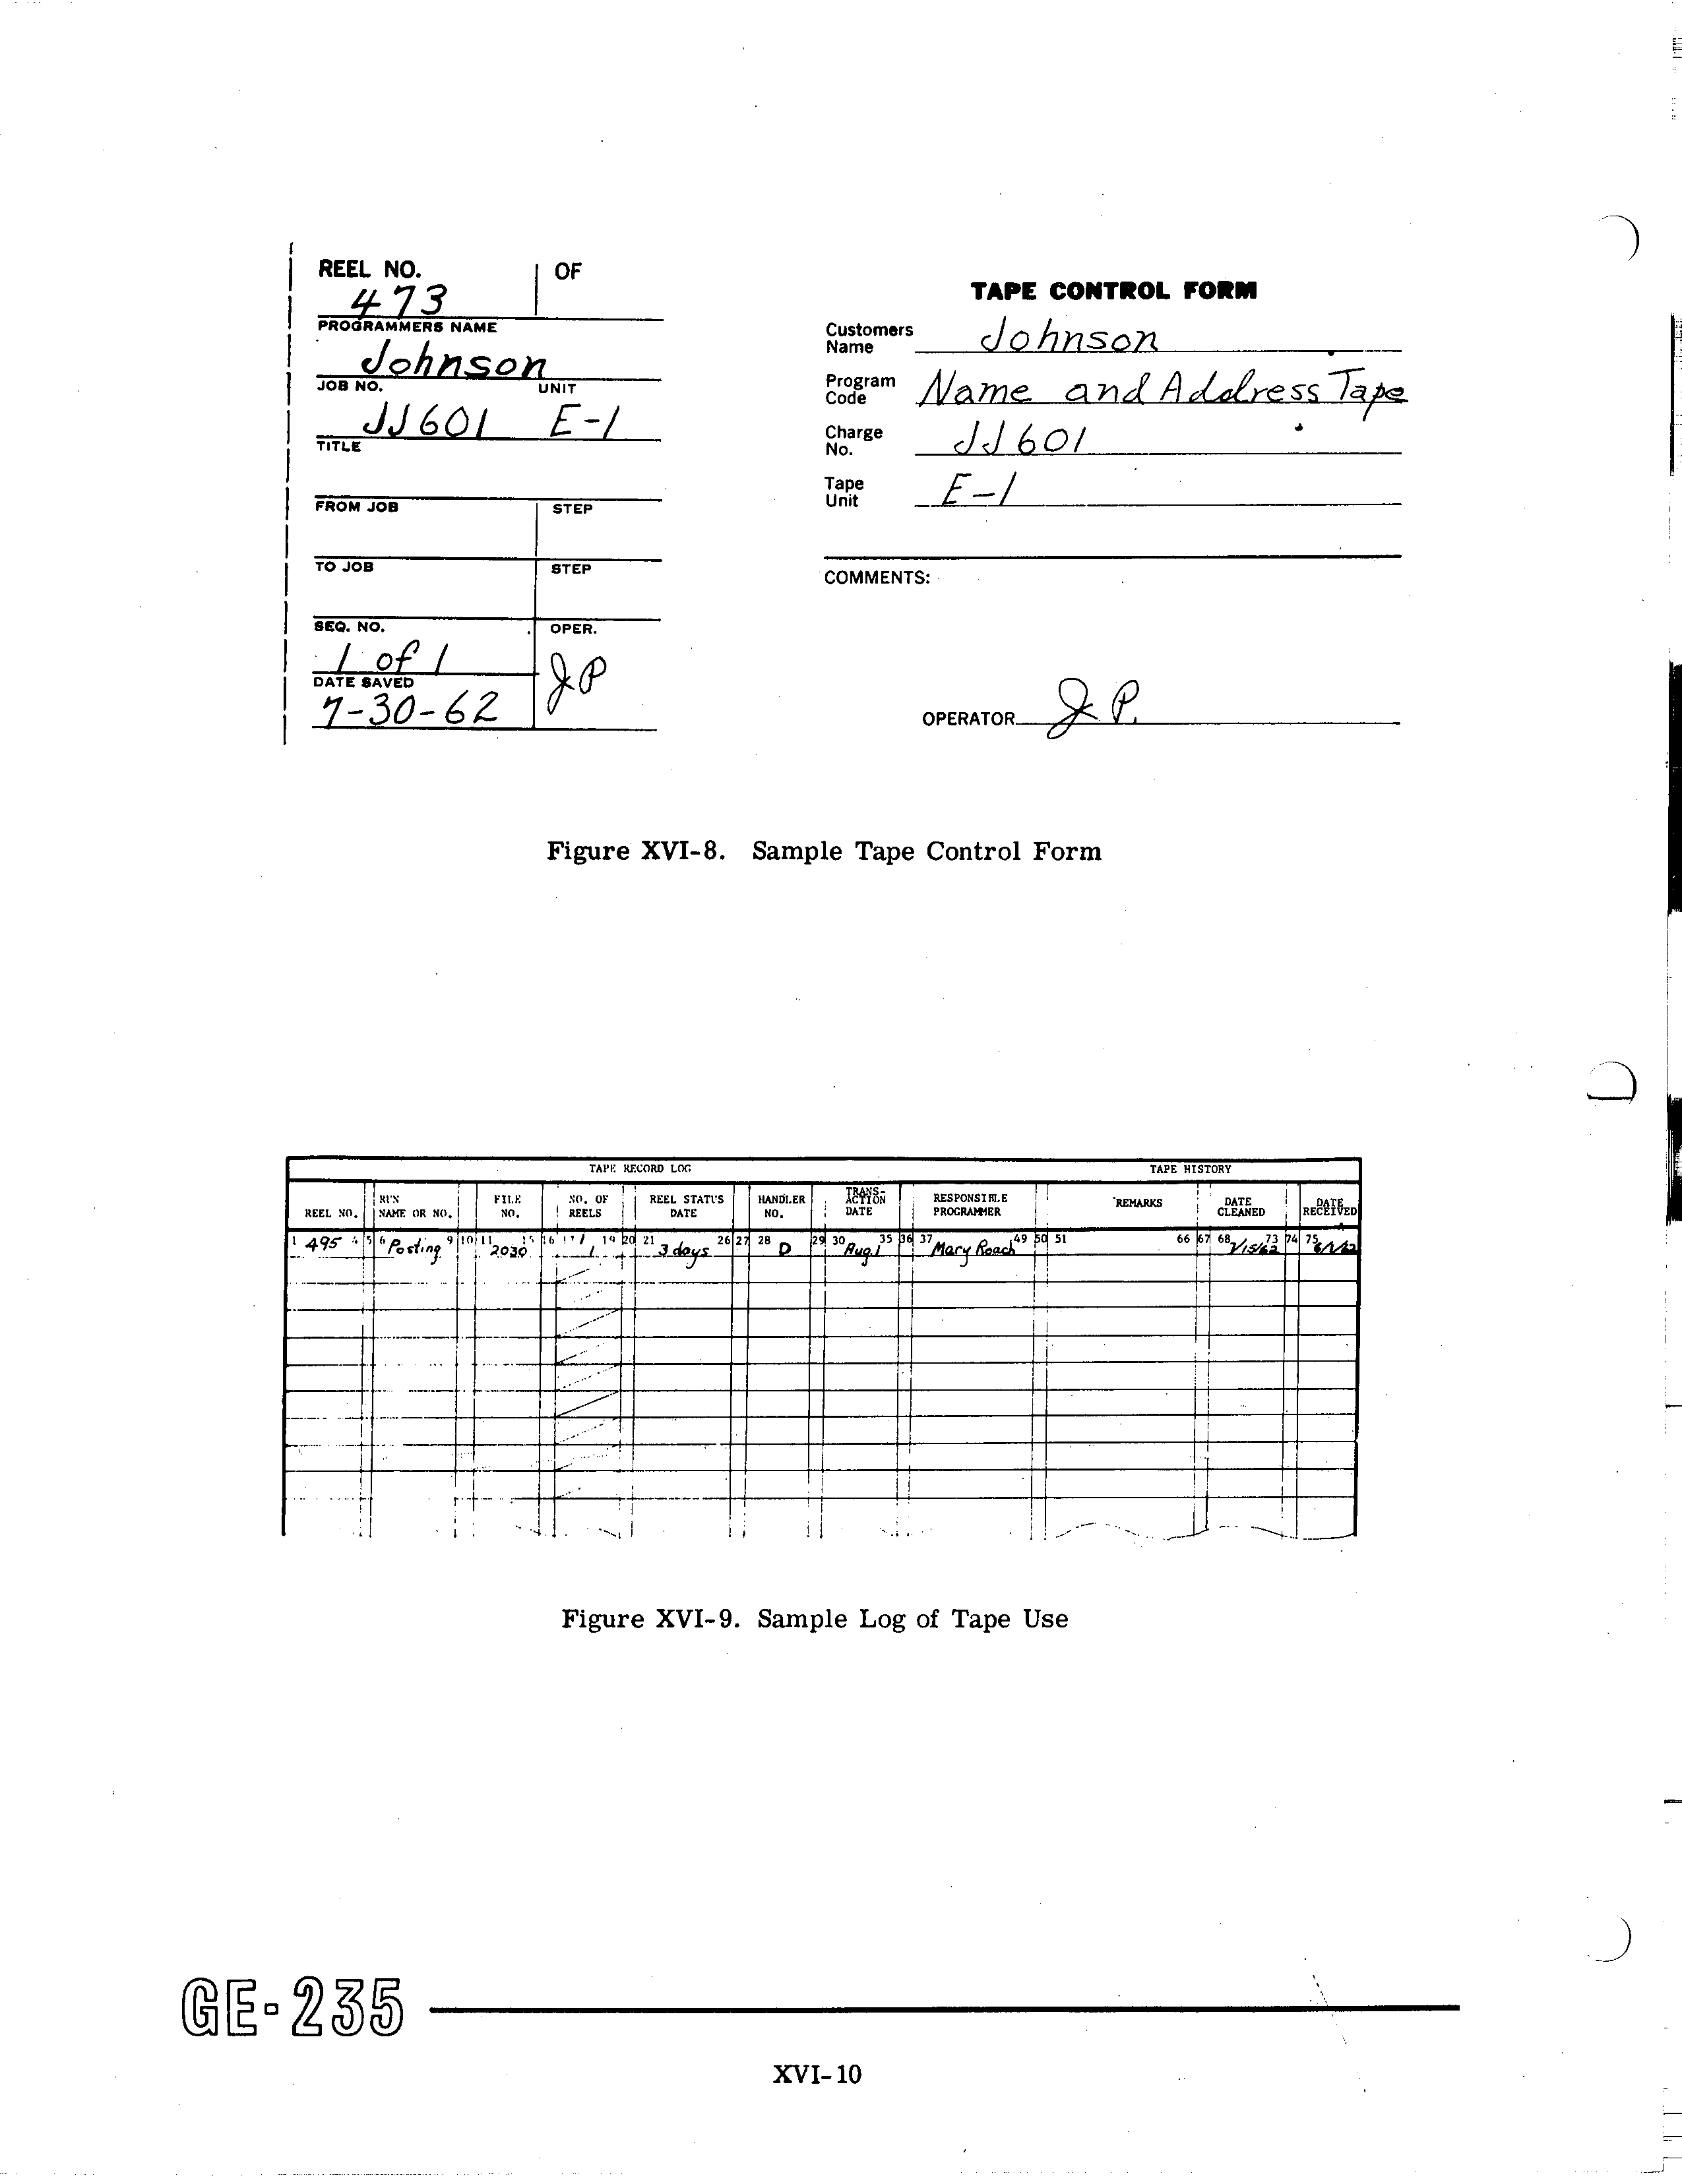 REEL NO. OF
473
PROGRAMMERS NAME
Johnson
JOB NO. UNIT
JJ601 E-1
TITLE
FROM JOB STEP
TO JOB STEP
SEQ. NO. OPER.
1 of 1 JP
DATE SAVED
7-30-62
TAPE CONTROL FORM
Customers Name Johnson
Program Code Name and Address Tape
Charge No. JJ601
Tape Unit E-1
COMMENTS:
OPERATOR J P.
Figure XVI-8. Sample Tape Control Form
TAPE RECORD LOG TAPE HISTORY
REEL NO. RUN NAME OR NO. FILE NO. NO. OF REELS REEL STATUS DATE HANDLER NO. TRANS-ACTION DATE RESPONSIBLE PROGRAMMER REMARKS DATE CLEANED DATE RECEIVED
1 495 4 5 6 Posting 9 10 11 2030 15 16 17 1 19 20 21 3 days 26 27 28 D 29 30 Aug. 1 35 36 37 Mary Roach 49 50 51 66 67 68 73 74 75
Figure XVI-9. Sample Log of Tape Use
GE-235
XVI-10